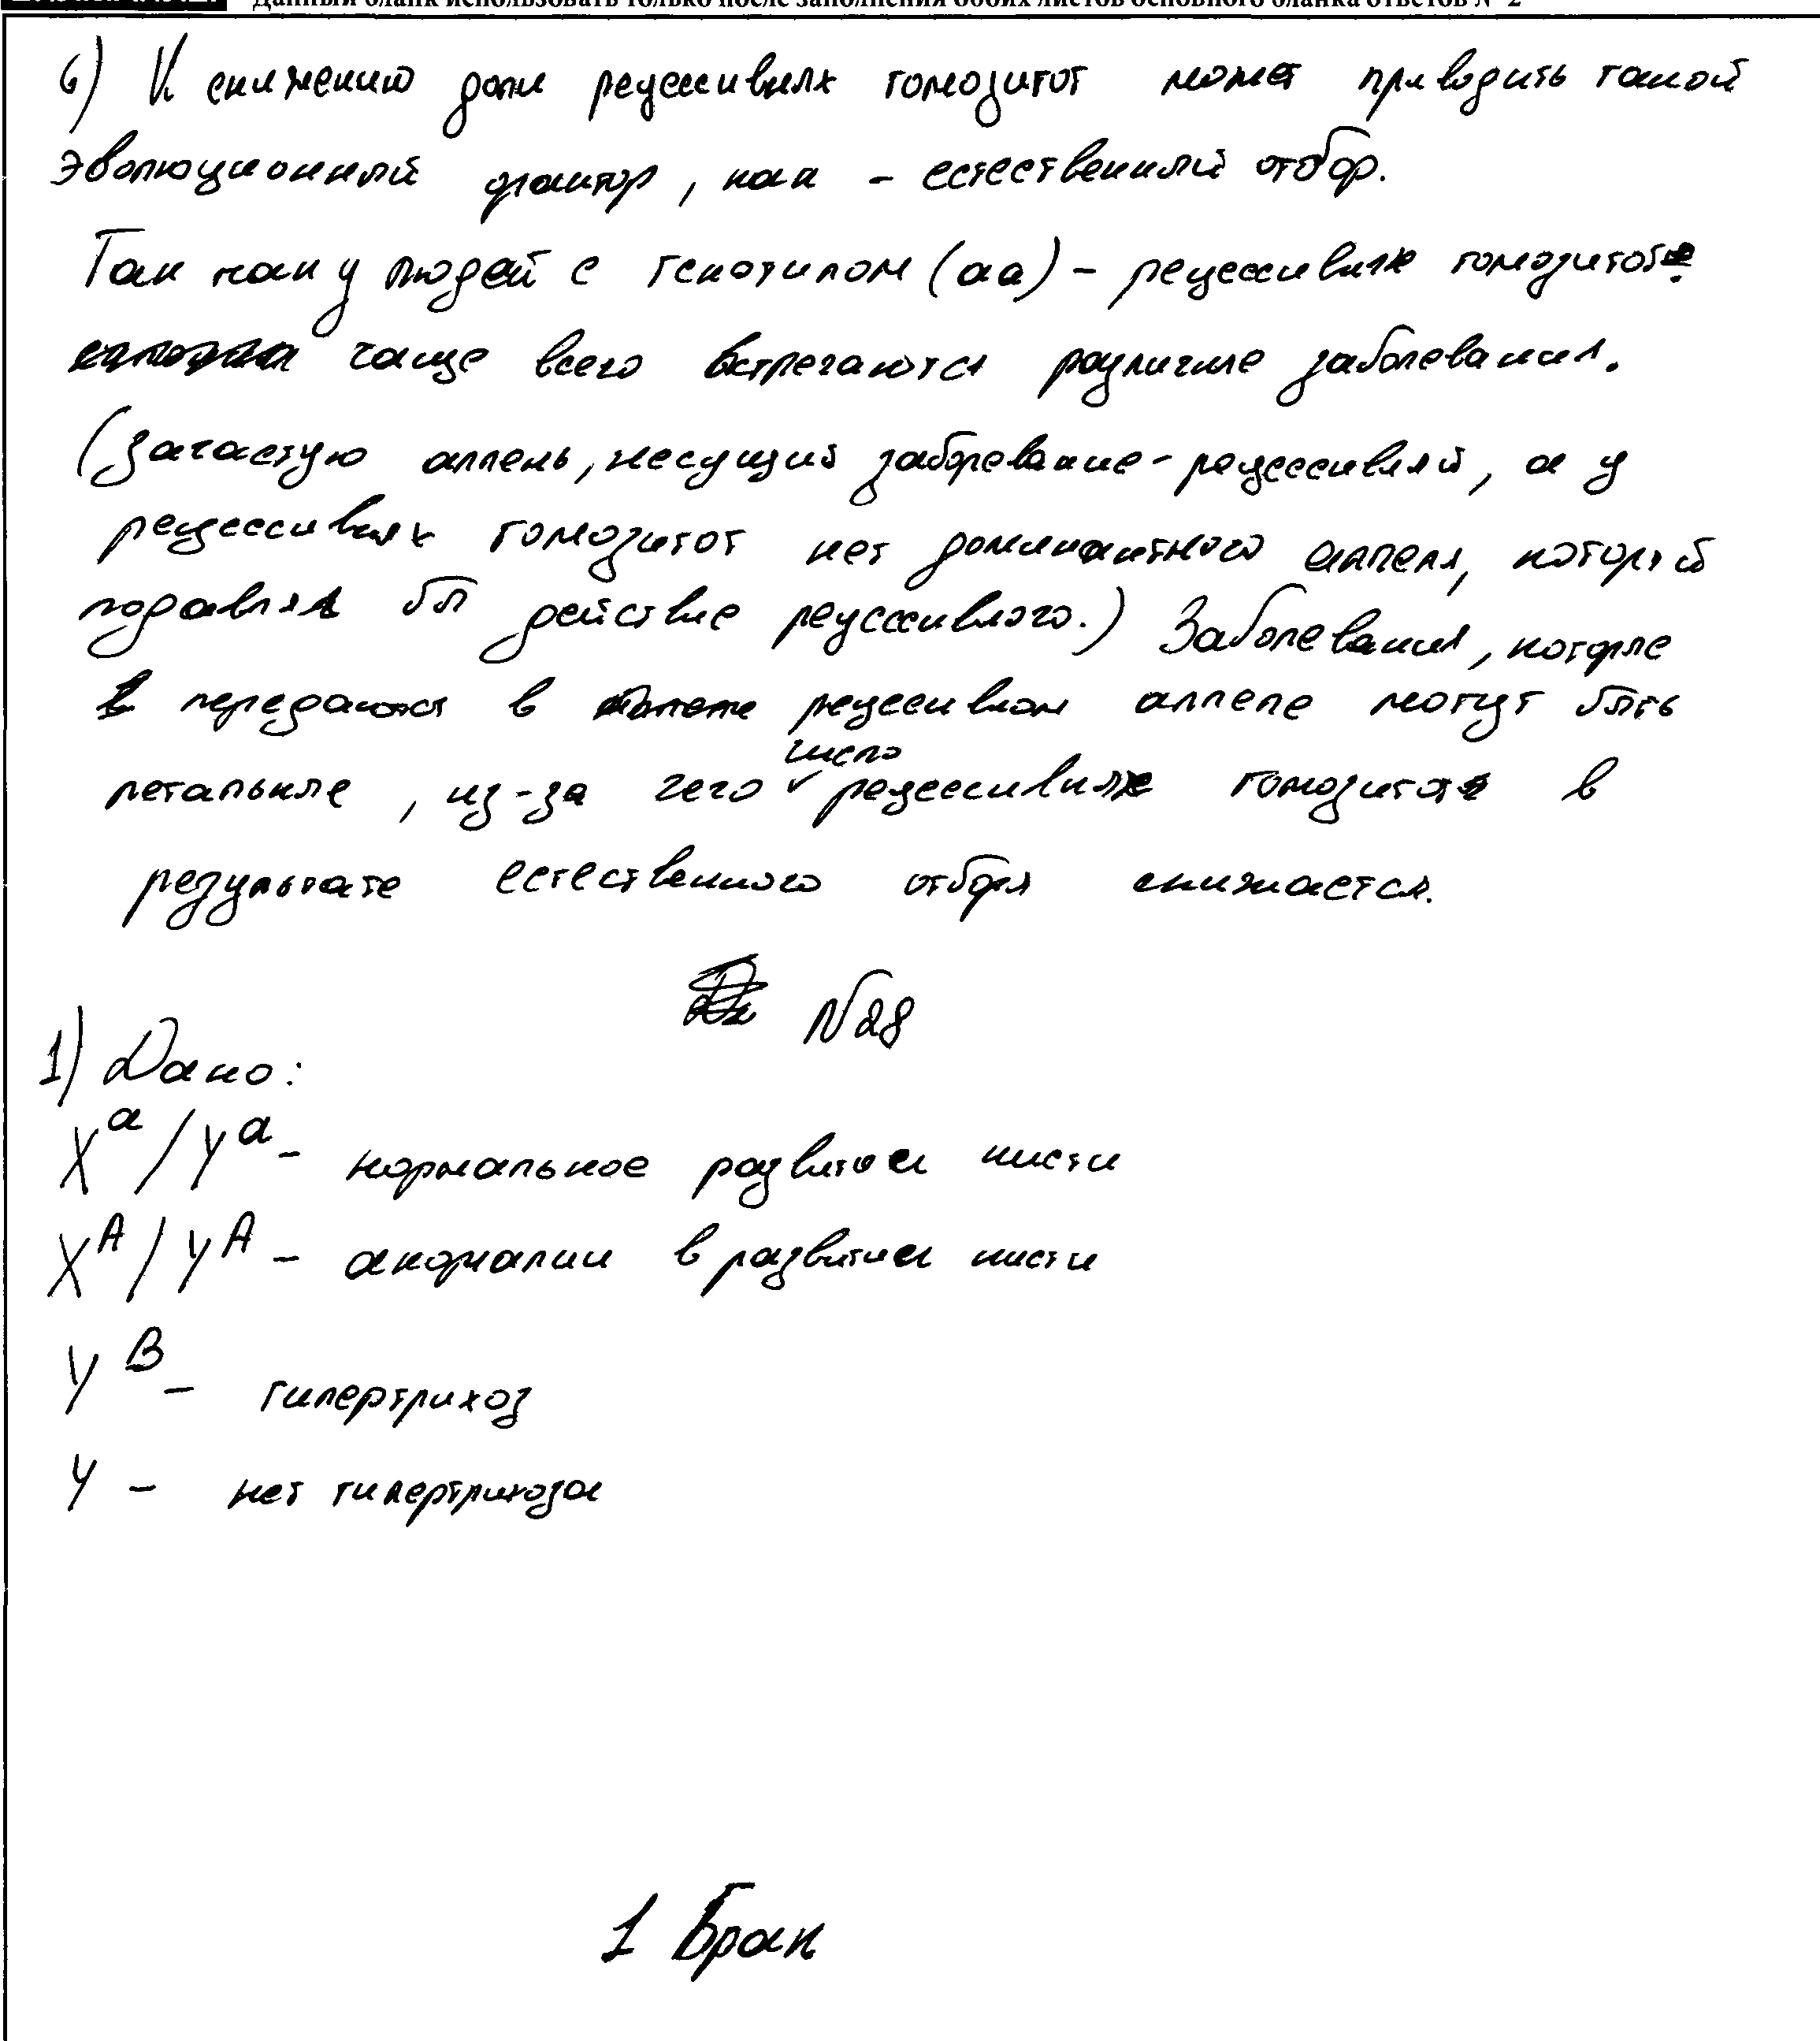 Данный бланк использовать только после заполнения обоих листов основного бланка ответов № 2
6) К снижению доли рецессивных гомозигот может приводить такой
эволюционный фактор, как - естественный отбор.
Так как у людей с генотипом (аа) - рецессивных гомозигот
чаще всего встречаются различные заболевания.
(Зачастую аллель, несущий заболевание - рецессивный, а у
рецессивных гомозигот нет доминантного аллеля, который
подавлял бы действие рецессивного.) Заболевания, которые
передаются в рецессивном аллеле могут быть
летальные, из-за чего число рецессивных гомозигот в
результате естественного отбора снижается.
№28
1) Дано:
Xᵃ / Yᵃ - нормальное развитие кисти
Xᴬ / Yᴬ - аномалии в развитии кисти
Yᴮ - гипертрихоз
Y - нет гипертрихоза
1 Брак